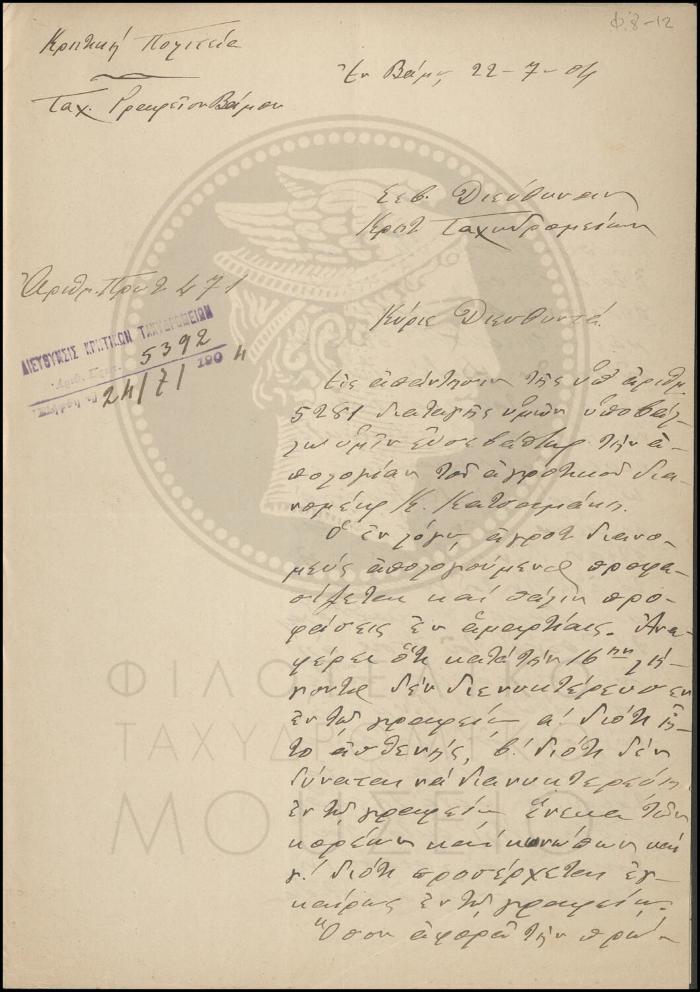 Φ.8-12
Κρητική Πολιτεία
Ταχ. Γραφεῖον Βάμου
Ἐν Βάμῳ 22-7-04
Σεβ. Διεύθυνσιν
Κρητ. Ταχυδρομείων
Ἀριθμ. Πρωτ. 471
ΔΙΕΥΘΥΝΣΙΣ ΚΡΗΤΙΚΩΝ ΤΑΧΥΔΡΟΜΕΙΩΝ
5392
24/7/ 1904
Κύριε Διευθυντά
Εἰς ἀπάντησιν τῆς ὑπ' ἀριθμ.
5281 διαταγῆς ὑμῶν ὑποβάλ-
λω ὑμῖν εὐσεβάστως τὴν ἀ-
πολογίαν τοῦ ἀγροτικοῦ δια-
νομέως Κ. Κατσαμάκη.
Ὁ ἐν λόγῳ ἀγροτ. διανο-
μεὺς ἀπολογούμενος προφα-
σίζεται καὶ πάλιν προ-
φάσεις ἐν ἁμαρτίαις. Ἀνα-
φέρει ὅτι κατὰ τὴν 16ην λή-
γοντος δὲν διενυκτέρευσεν
ἐν τῷ γραφείῳ α! διότι ἦ-
το ἀσθενής, β! διότι δὲν
δύναται νὰ διανυκτερεύῃ
ἐν τῷ γραφείῳ ἕνεκα τῶν
κορέων καὶ κωνώπων καὶ
γ! διότι προσέρχεται ἐγ-
καίρως ἐν τῷ γραφείῳ.
Ὅσον ἀφορᾷ τὴν πρώ-
ΦΙΛΟΤΕΛΙΚΟ
ΤΑΧΥΔΡΟΜΙΚΟ
ΜΟΥΣΕΙΟ